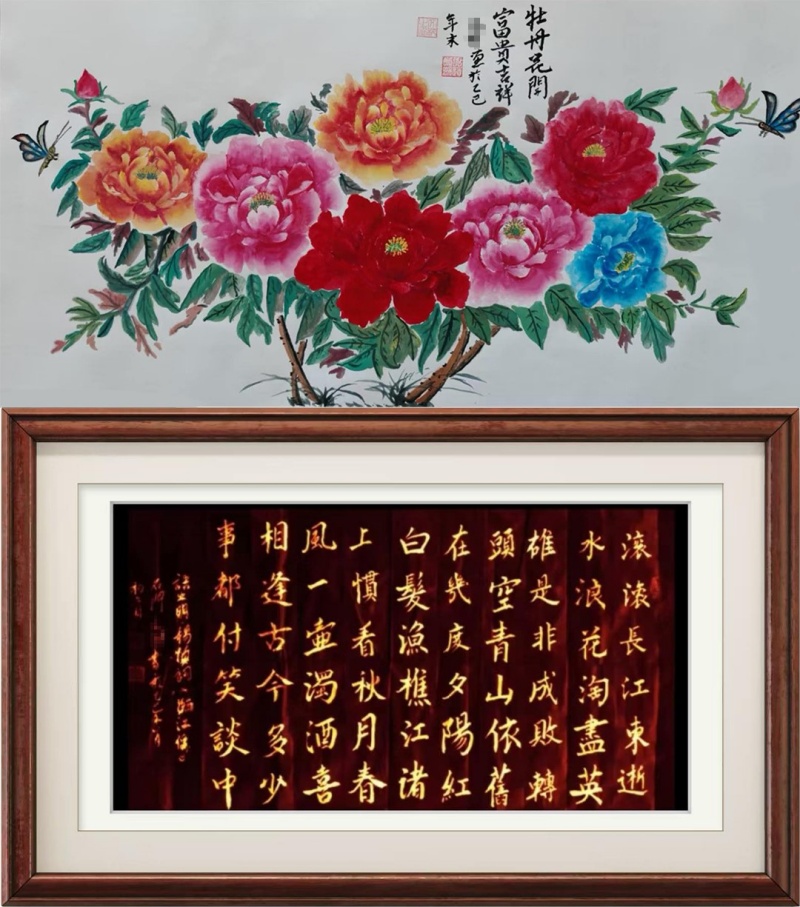 牡丹花開
富貴吉祥
画於乙巳
年末
滚滚長江東逝
水浪花淘盡英
雄是非成敗轉
頭空青山依舊
在幾度夕陽紅
白髮漁樵江渚
上慣看秋月春
風一壺濁酒喜
相逢古今多少
事都付笑談中